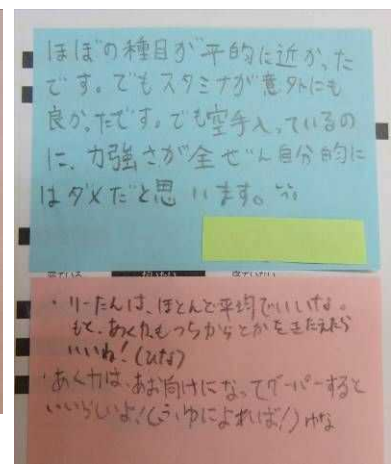 ほぼの種目が平的に近かった
です。でもスタミナが意外にも
良かったです。でも空手入っているの
に、力強さが全ぜん自分的に
はダメだと思います。
・りーたんは、ほとんど平均でいいね。
もと、あく力もつちからとかをきたえたら
いいね！（ひな）
・あく力は、あお向けになってグーパーすると
いいらしいよ！（ふゆによれば！）ゆな